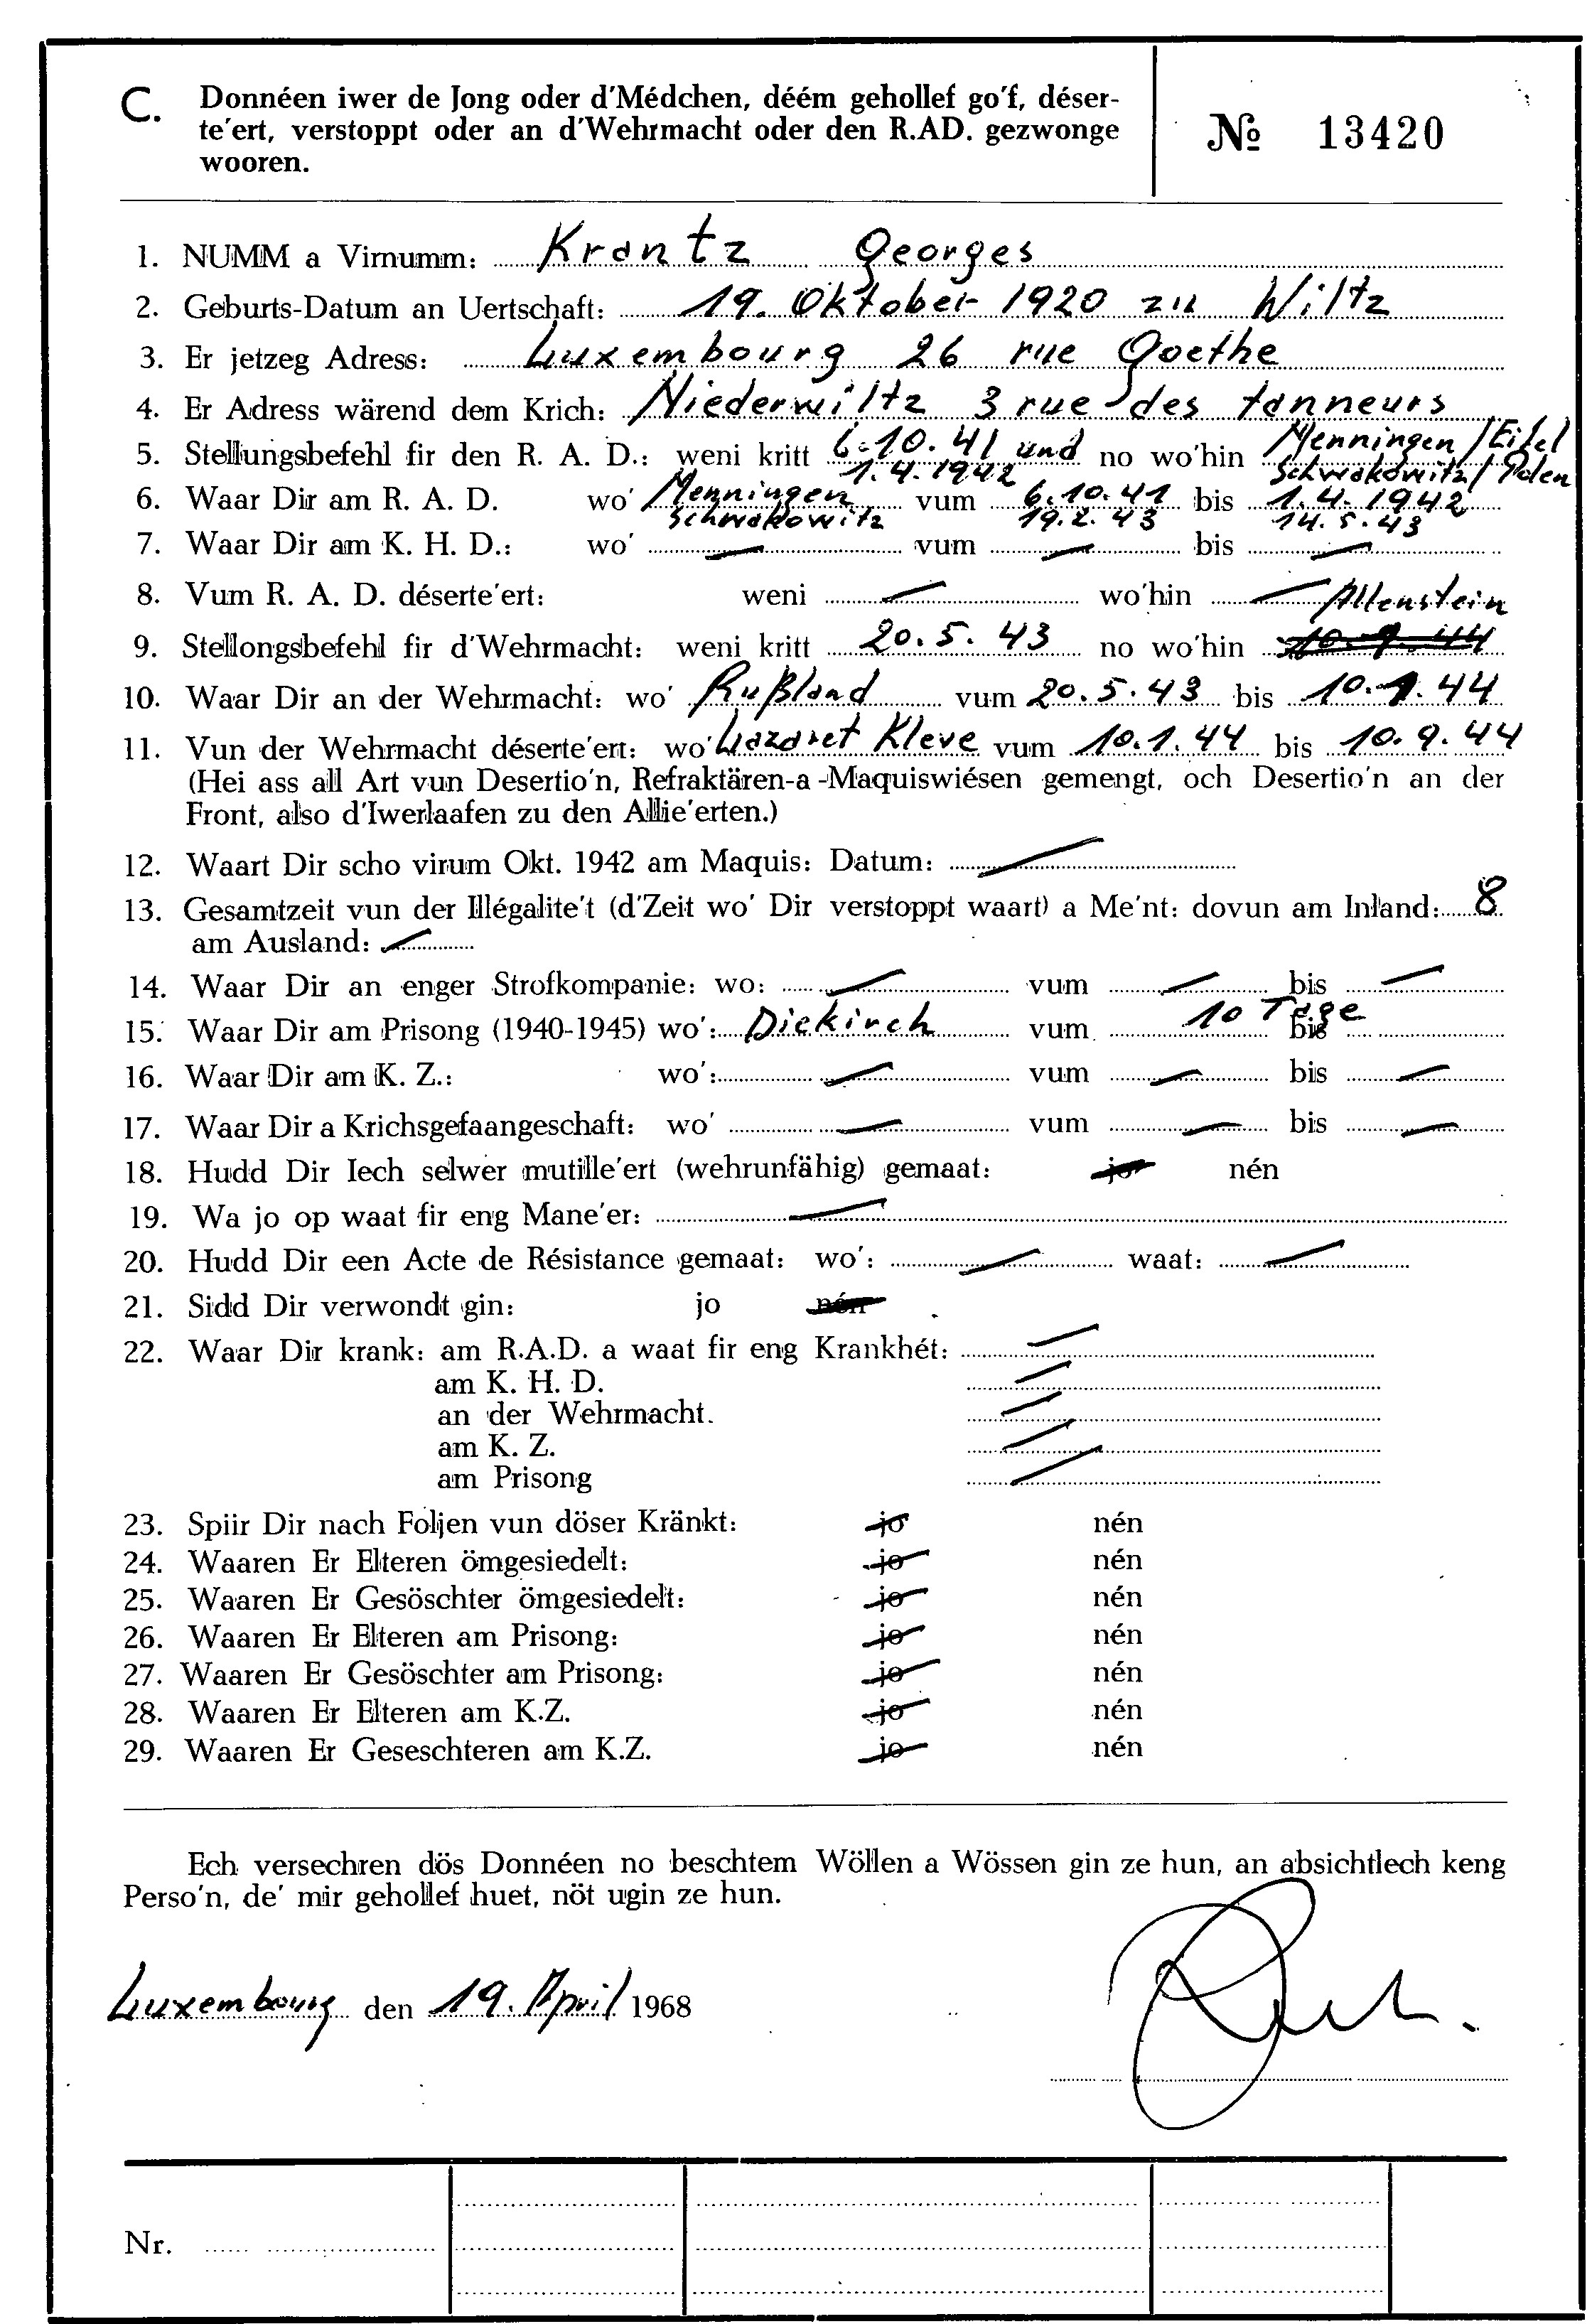 C. Donnéen iwer de Jong oder d'Médchen, déém gehollef go'f, déser-
te'ert, verstoppt oder an d'Wehrmacht oder den R.AD. gezwonge
wooren.
№ 13420
1. NUMM a Virnumm: Krantz Georges
2. Geburts-Datum an Uertschaft: 19. Oktober 1920 zu Wiltz
3. Er jetzeg Adress: Luxembourg 26 rue Goethe
4. Er Adress wärend dem Krich: Niederwiltz 3 rue des tanneurs
5. Stellungsbefehl fir den R. A. D.: weni kritt 6.10.41 und no wo'hin Menningen/Eifel
1.4.1942 Schwakowitz/Polen
6. Waar Dir am R. A. D. wo' Menningen vum 6.10.41 bis 1.4.1942
Schwakowitz 19.2.43 14.5.43
7. Waar Dir am K. H. D.: wo' — vum — bis —
8. Vum R. A. D. déserte'ert: weni — wo'hin —
Allenstein
9. Stellongsbefehl fir d'Wehrmacht: weni kritt 20.5.43 no wo'hin 10.9.44
10. Waar Dir an der Wehrmacht: wo' Rußland vum 20.5.43 bis 10.1.44
11. Vun der Wehrmacht déserte'ert: wo' Lazaret Kleve vum 10.1.44 bis 10.9.44
(Hei ass all Art vun Desertio'n, Refraktären-a-Maquiswiésen gemengt, och Desertio'n an der
Front, also d'Iwerlaafen zu den Allie'erten.)
12. Waart Dir scho virum Okt. 1942 am Maquis: Datum: —
13. Gesamtzeit vun der Illégalite't (d'Zeit wo' Dir verstoppt waart) a Me'nt: dovun am Inland: 8
am Ausland: —
14. Waar Dir an enger Strofkompanie: wo: — vum — bis —
15. Waar Dir am Prisong (1940-1945) wo': Diekirch vum 10 Tage bis
16. Waar Dir am K. Z.: wo': — vum — bis —
17. Waar Dir a Krichsgefaangeschaft: wo' — vum — bis —
18. Hudd Dir Iech selwer mutille'ert (wehrunfähig) gemaat: jo nén
19. Wa jo op waat fir eng Mane'er: —
20. Hudd Dir een Acte de Résistance gemaat: wo': — waat: —
21. Sidd Dir verwondt gin: jo nén
22. Waar Dir krank: am R.A.D. a waat fir eng Krankhét: —
am K. H. D. —
an der Wehrmacht. —
am K. Z. —
am Prisong —
23. Spiir Dir nach Foljen vun döser Kränkt: jo nén
24. Waaren Er Elteren ömgesiedelt: jo nén
25. Waaren Er Gesöschter ömgesiedelt: jo nén
26. Waaren Er Elteren am Prisong: jo nén
27. Waaren Er Gesöschter am Prisong: jo nén
28. Waaren Er Elteren am K.Z. jo nén
29. Waaren Er Geseschteren am K.Z. jo nén
Ech versechren dös Donnéen no beschtem Wöllen a Wössen gin ze hun, an absichtlech keng
Perso'n, de' mir gehollef huet, nöt ugin ze hun.
Luxembourg den 19. April 1968
Nr.